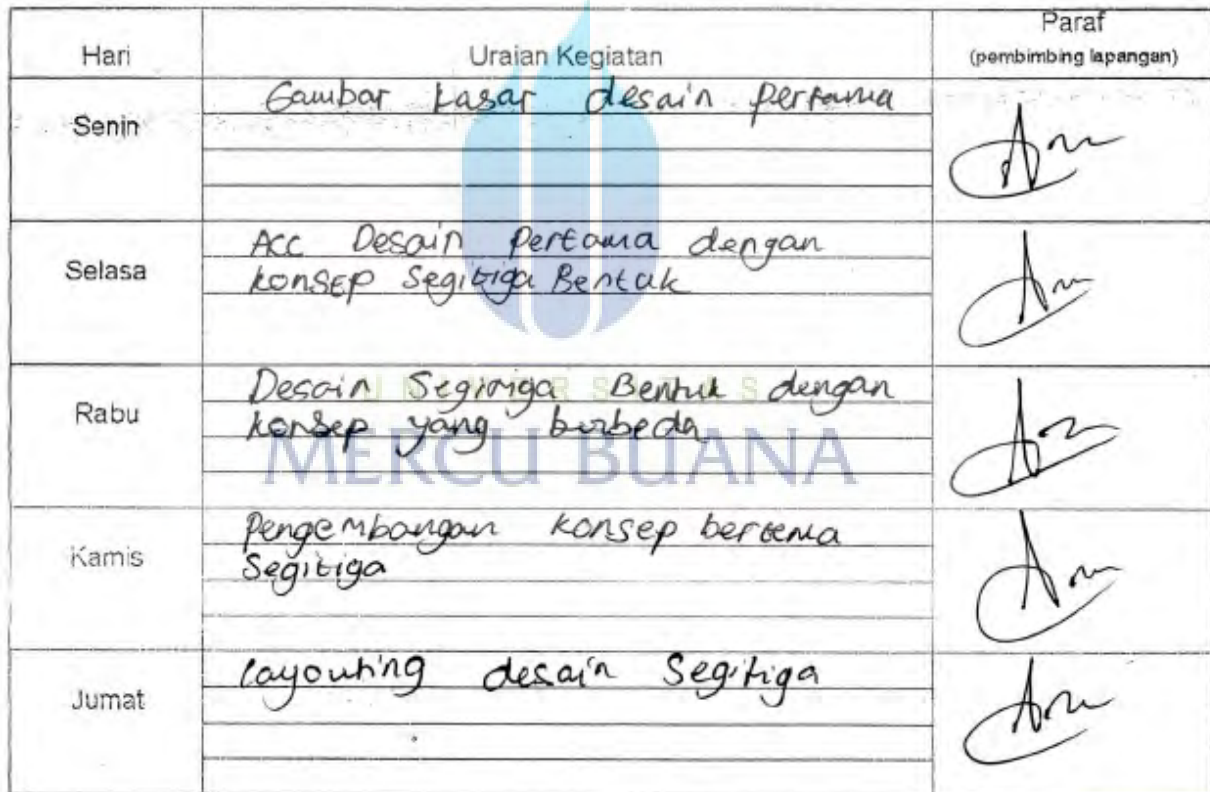 Hari Uraian Kegiatan Paraf
(pembimbing lapangan)
Senin Gambar kasar desain pertama
Selasa Acc Desain pertama dengan
konsep Segitiga Bentuk
Rabu Desain Segitiga Bentuk dengan
konsep yang berbeda
UNIVERSITAS
MERCU BUANA
Kamis Pengembangan konsep bertema
Segitiga
Jumat Layouting desain Segitiga